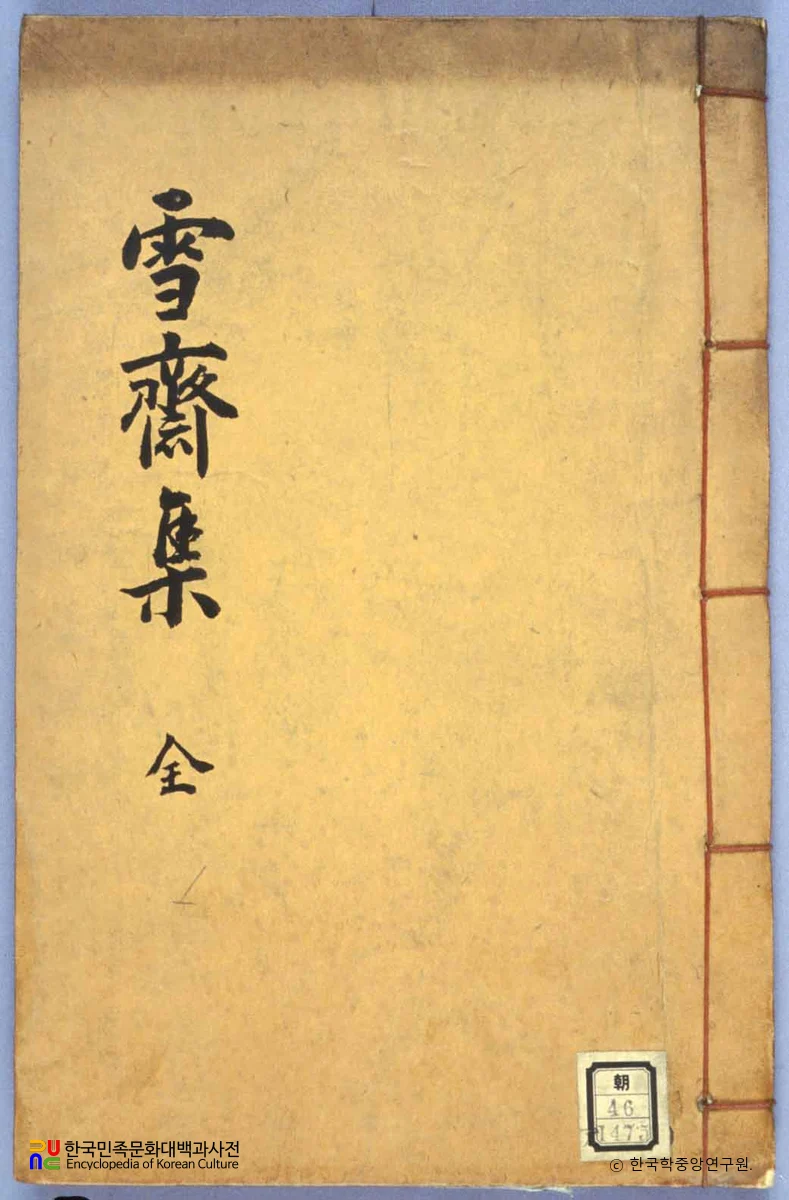 雪齋集
全
朝
46
1475
한국민족문화대백과사전
Encyclopedia of Korean Culture
© 한국학중앙연구원.